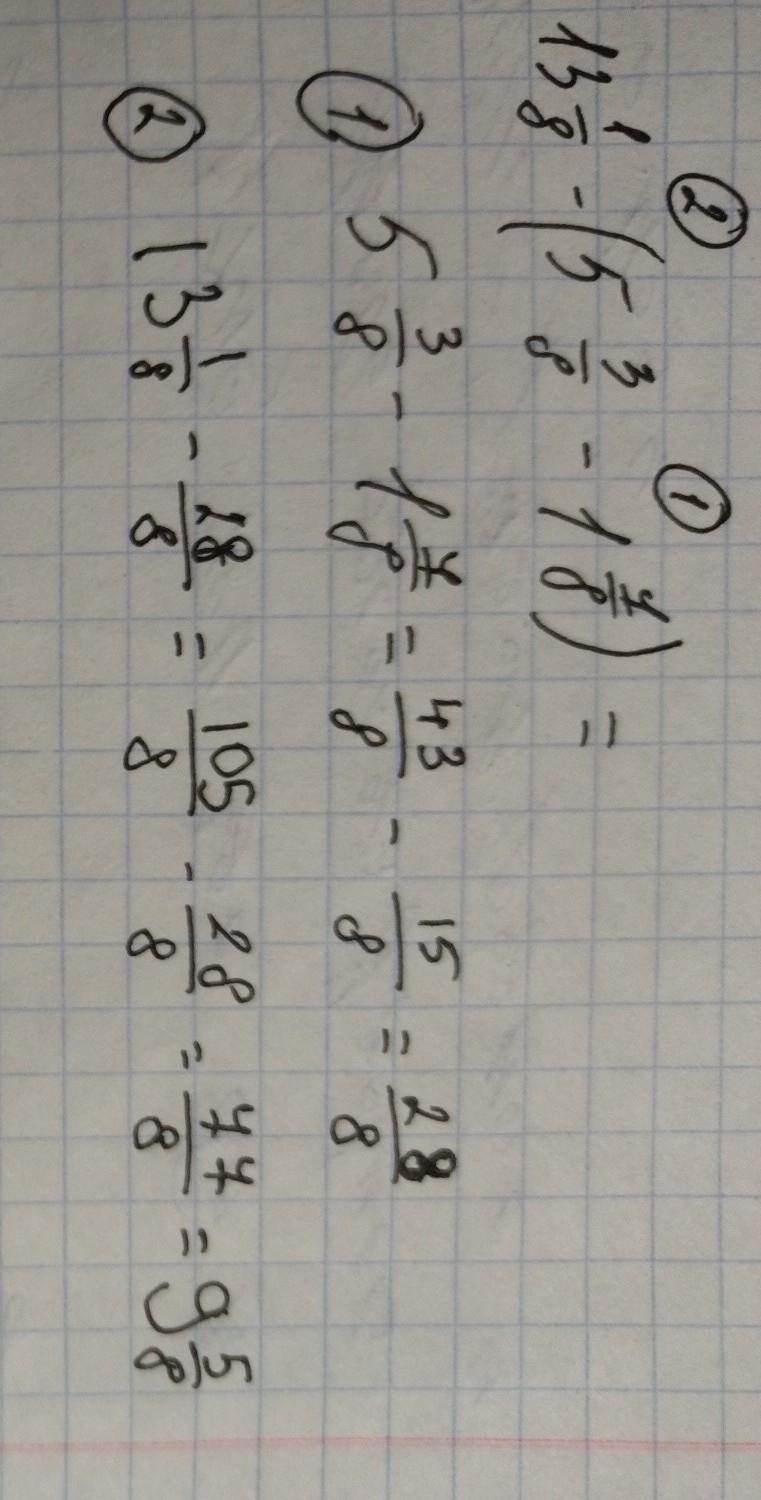 ② ①
13 1/8 - (5 3/8 - 1 7/8) =
① 5 3/8 - 1 7/8 = 43/8 - 15/8 = 28/8
② 13 1/8 - 28/8 = 105/8 - 28/8 = 77/8 = 9 5/8